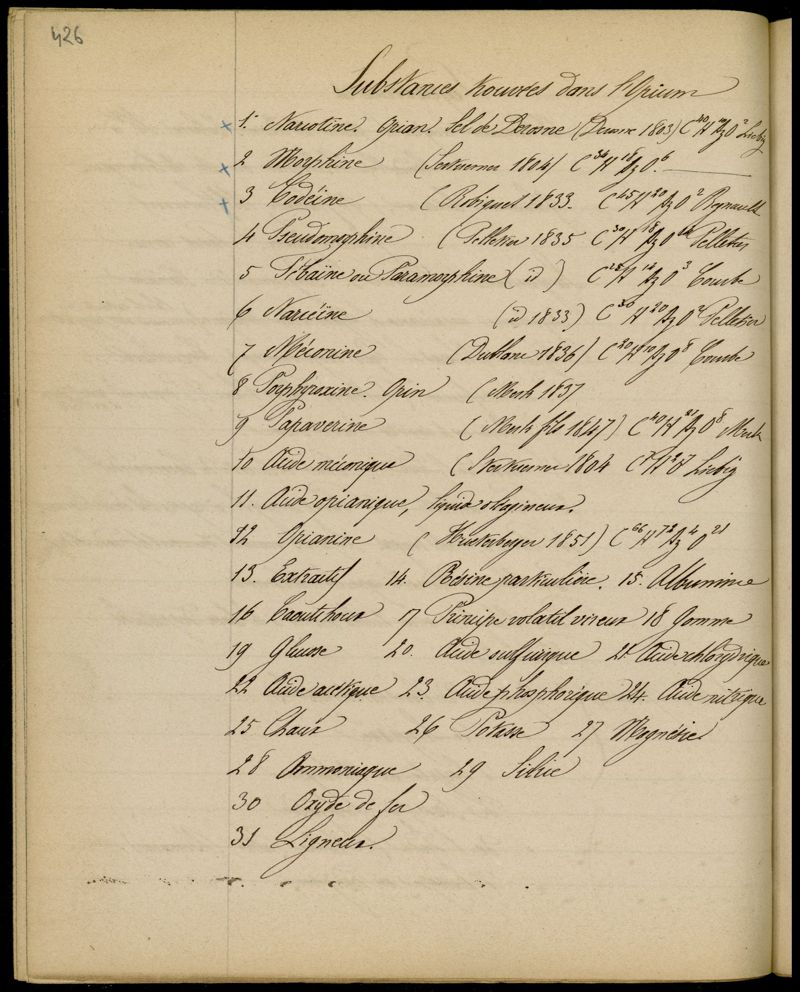 426
Substances trouvées dans l'Opium
1° Narcotine. Opian. Sel de Derosne (Derosne 1803) C⁴⁰H Az O² Liebig
2 Morphine (Sertuerner 1804) C³⁴H¹⁸AzO⁶.
3 Codéine (Robiquet 1833. C H²⁰AzO² Regnault
4 Pseudomorphine (Pelletier 1835 C³⁰H¹⁸AzO¹⁴ Pelletier
5 Thbaïne ou Paramorphine (id) C H¹⁴AzO³ Couerbe
6 Narcéine (id 1833) C H²⁰AzO Pelletier
7 Méconine (Dublanc 1836) C²⁰H¹⁰AzO⁸ Couerbe
8 Porphyroxine. Opin (Merk 1837
9 Papaverine (Merk fils 1847) C⁴⁰H²¹AzO⁸ Merk
10 Acide méconique (Sertuerner 1804 Liebig
11. Acide opianique, liquid oléagineux.
12 Opianine (Hinterberger 1851) C⁶⁶H⁷²Az⁴O²¹
13. Extractif 14. Résine particulière. 15. Albumine
16 Caoutchouc 17 Principe volatil vireux 18 Gomme
19 Glucose 20. Acide sulfurique 21. Acide chlorydrique
22 Acide acétique 23. Acide phosphorique 24. Acide nitrique
25 Chaux 26 Potasse 27 Magnésie
28 Ammoniaque 29 Silice
30 Oxyde de fer
31 Ligneux.